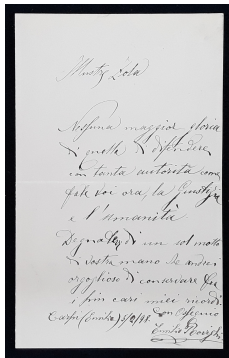 Illustre Zola
Nessuna maggior gloria
di quella di difendere
con tanta autorità come
fate voi ora, la Giustizia
e l'umanità
Degnatevi di un sol motto
di vostra mano. Ne andrei
orgoglioso di conservare fra
i più cari miei ricordi
Con ossequio
Carpi (Emilia)
Emilio